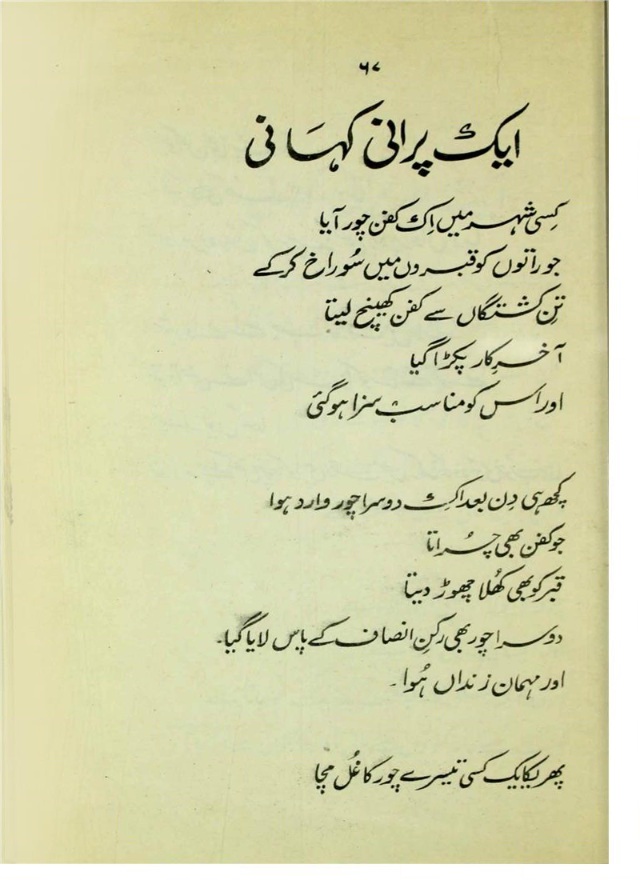 ۶۷
ایک پرانی کہانی
کِسی شہر میں اِک کفن چور آیا
جو راتوں کو قبروں میں سُوراخ کر کے
تنِ کشتگاں سے کفن کھینچ لیتا
آخرِ کار پکڑا گیا
اور اُس کو مناسب سزا ہو گئی
کچھ ہی دِن بعد اک دوسرا چور وارد ہوا
جو کفن بھی چُراتا
قبر کو بھی کُھلا چھوڑ دیتا
دوسرا چور بھی رکنِ انصاف کے پاس لایا گیا۔
اور مہمان زنداں ہُوا۔
پھر یکایک کسی تیسرے چور کا غُل مچا